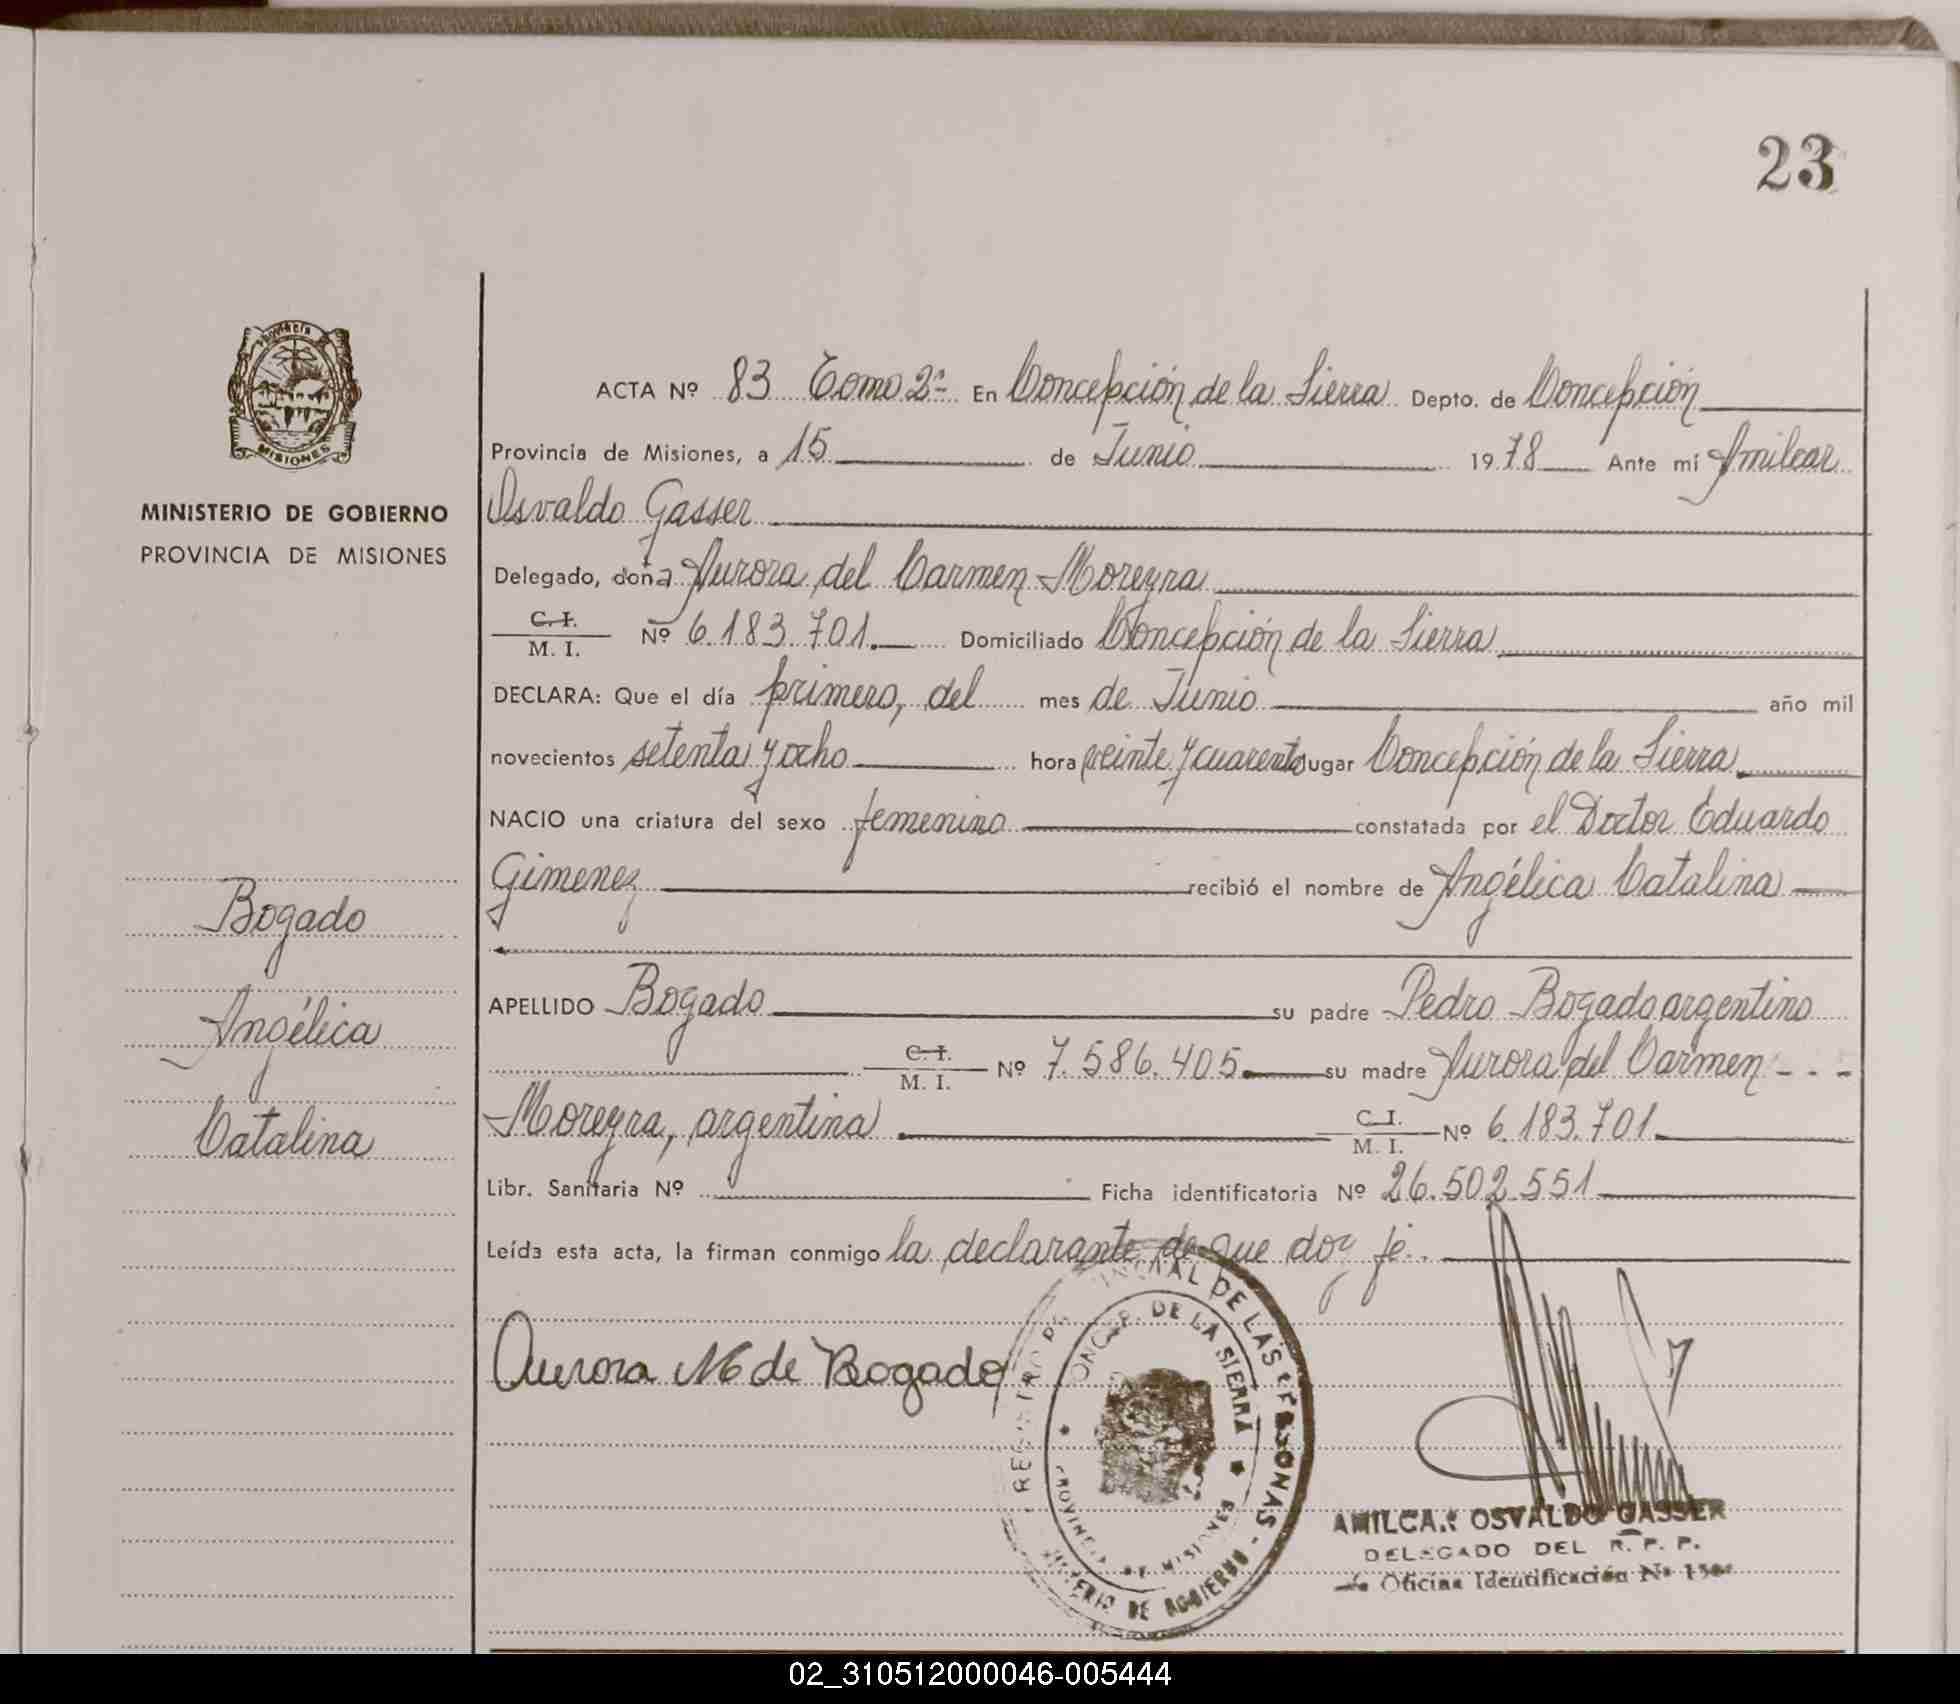 23
Provincia
MISIONES
MINISTERIO DE GOBIERNO
PROVINCIA DE MISIONES
Bogado
Angélica
Catalina
ACTA Nº 83 Tomo 2º En Concepción de la Sierra Depto. de Concepción
Provincia de Misiones, a 15 de Junio 1978 Ante mí Amilcar
Osvaldo Gasser
Delegado, doña Aurora del Carmen Moreyra
C. I.
M. I. Nº 6.183.701. Domiciliado Concepción de la Sierra
DECLARA: Que el día primero, del mes de Junio año mil
novecientos setenta y ocho hora veinte y cuarenta lugar Concepción de la Sierra
NACIO una criatura del sexo femenino constatada por el Doctor Eduardo
Gimenez recibió el nombre de Angélica Catalina
APELLIDO Bogado su padre Pedro Bogado argentino
C. I.
M. I. Nº 7.586.405 su madre Aurora del Carmen - - -
Moreyra, argentina C. I.
M. I. Nº 6.183.701
Libr. Sanitaria Nº Ficha identificatoria Nº 26.502.551
Leída esta acta, la firman conmigo la declarante de que doy fe.
Aurora M de Bogado
REGISTRO PROVINCIAL DE LAS PERSONAS - MINISTERIO DE GOBIERNO
CONCEP. DE LA SIERRA
PROVINCIA DE MISIONES
AMILCAR OSVALDO GASSER
DELEGADO DEL R. P. P.
Oficina Identificación Nº
02_310512000046-005444